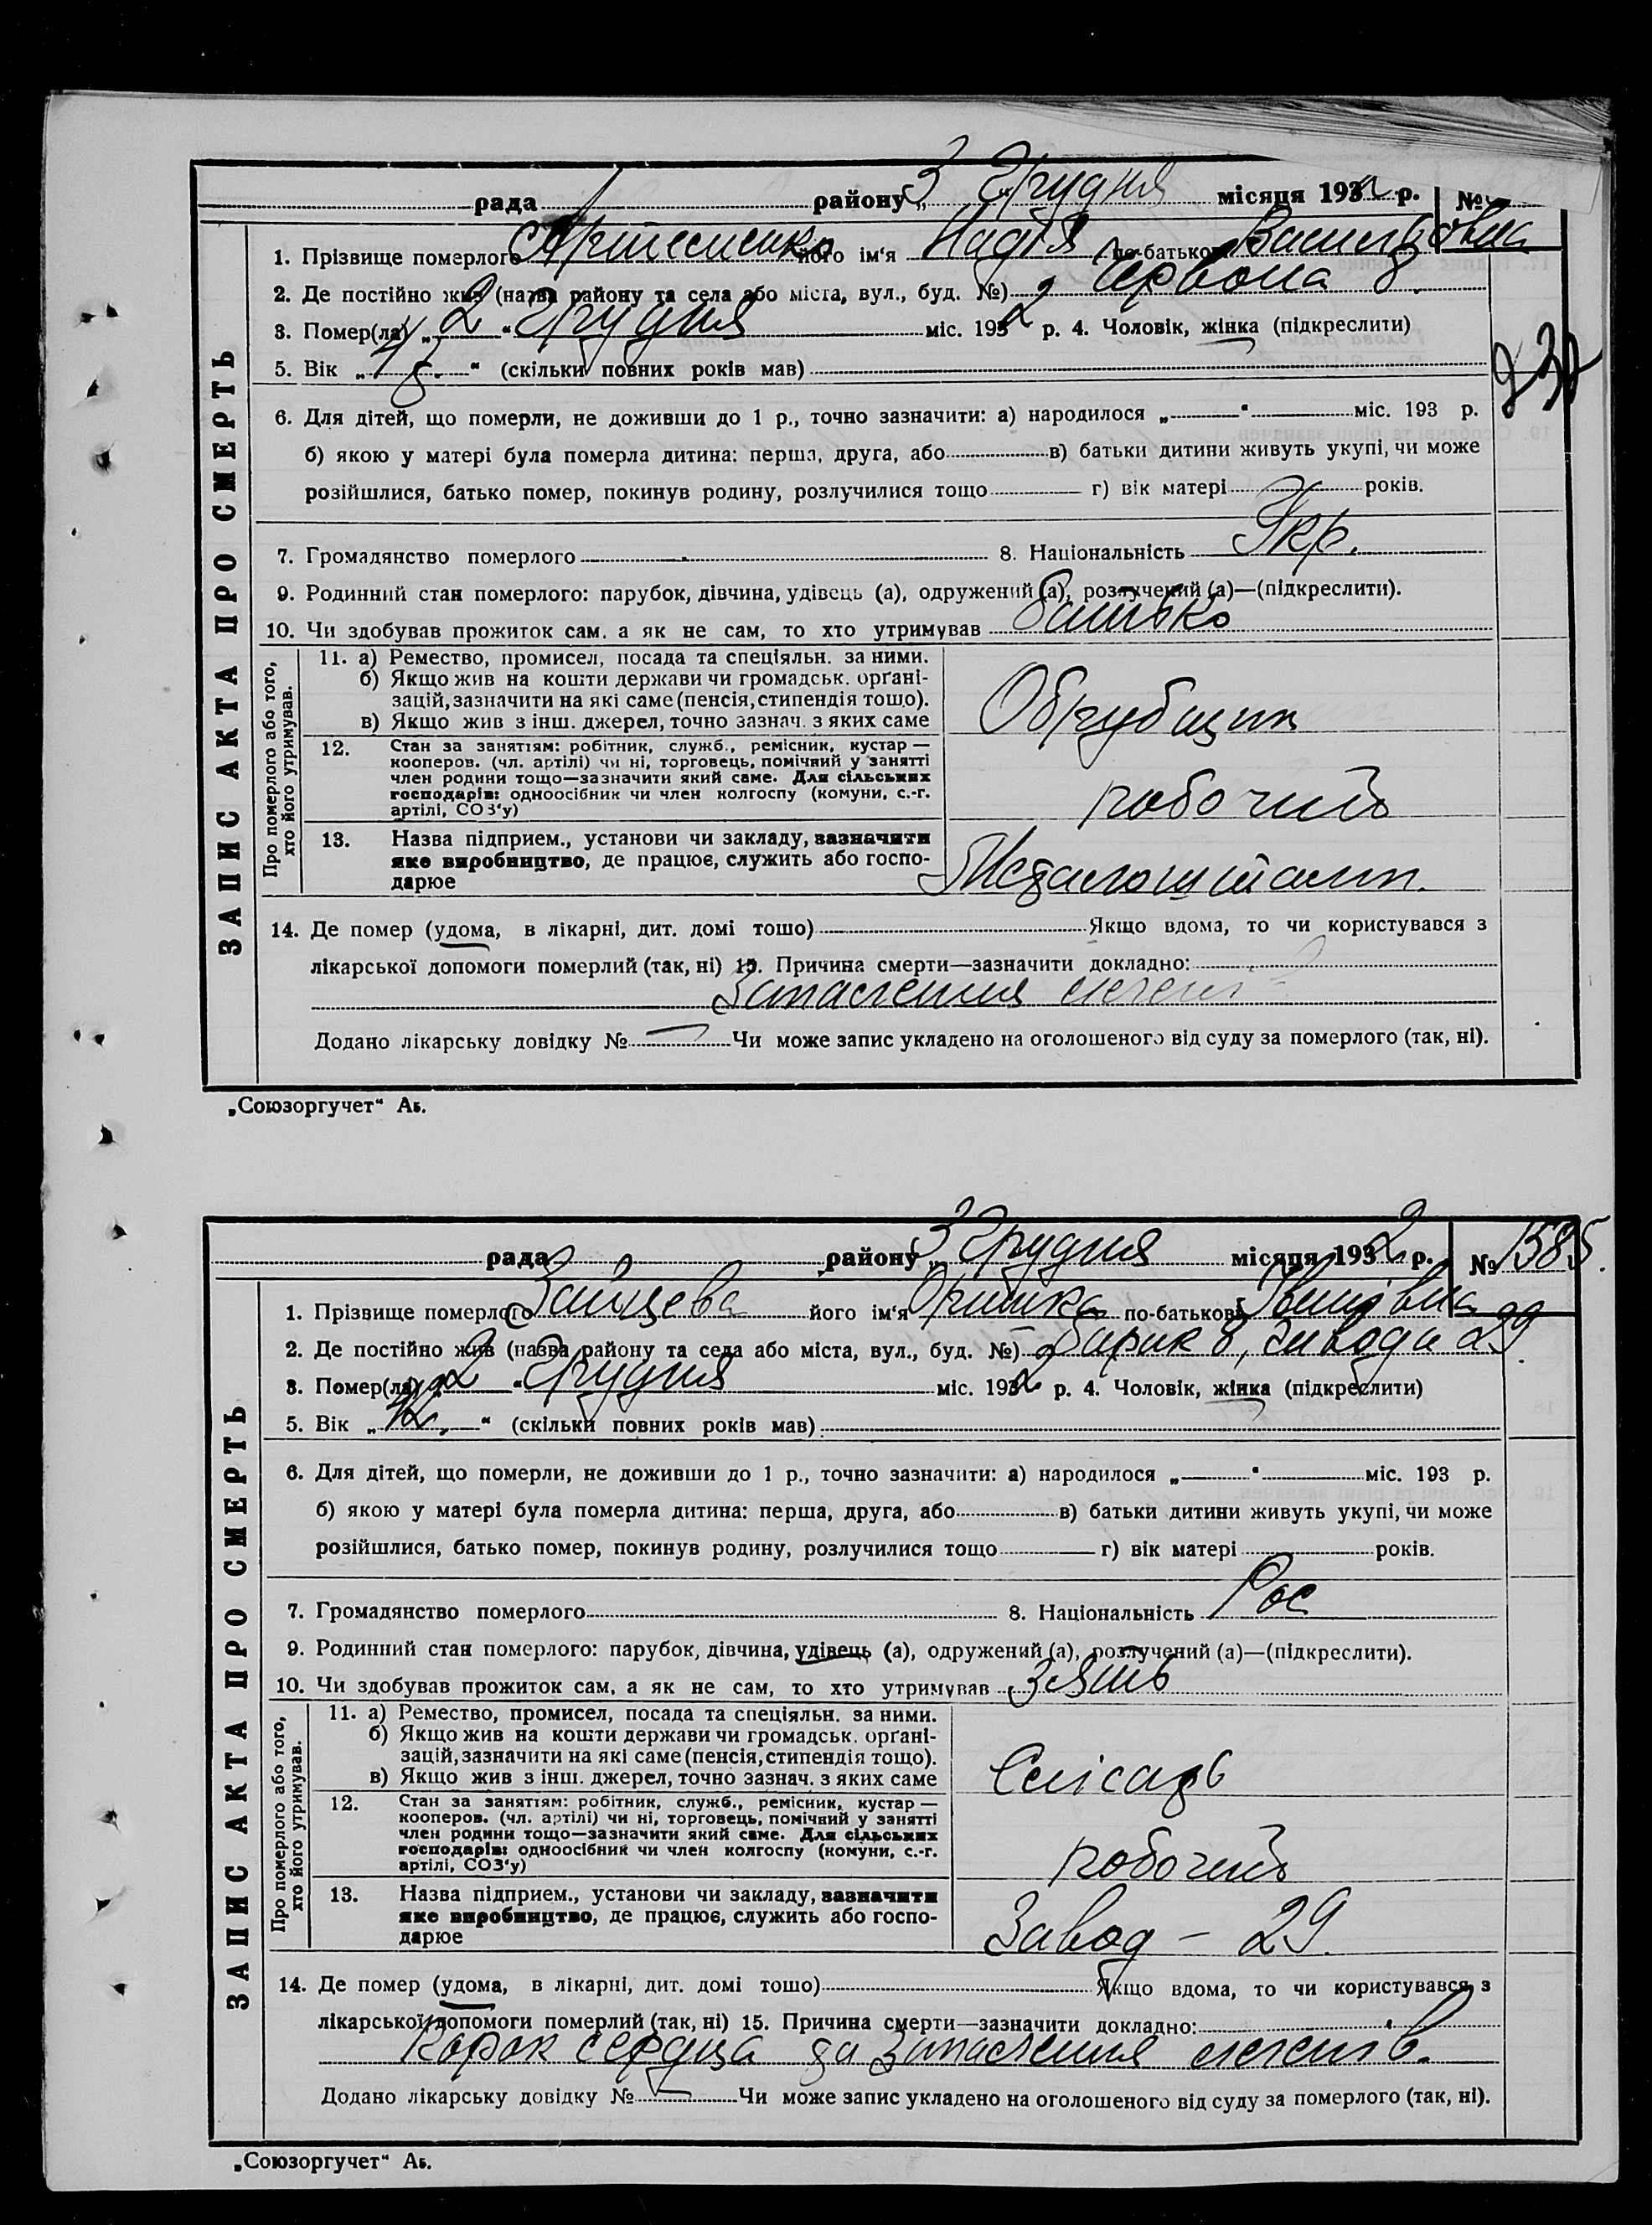 рада району „3 Грудня місяця 1932 р. №
1. Прізвище померлого Артеменко його ім'я Надія по-батькові Васильовна
2. Де постійно жив (назва району та села або міста, вул., буд. №) Червона 8.
3. Помер(ла) „2 “ Грудня міс. 1932 р. 4. Чоловік, жінка (підкреслити)
5. Вік „ “ (скільки повних років мав)
6. Для дітей, що померли, не доживши до 1 р., точно зазначити: а) народилося „ “ міс. 193 р.
б) якою у матері була померла дитина: перша, друга, або в) батьки дитини живуть укупі, чи може
розійшлися, батько помер, покинув родину, розлучилися тощо г) вік матері років.
7. Громадянство померлого 8. Національність Укр.
9. Родинний стан померлого: парубок, дівчина, удівець (а), одружений (а), розлучений (а)—(підкреслити).
10. Чи здобував прожиток сам, а як не сам, то хто утримував батько
ЗАПИС АКТА ПРО СМЕРТЬ
Про померлого або того, хто його утримував.
11. а) Ремество, промисел, посада та спеціяльн. за ними.
б) Якщо жив на кошти держави чи громадськ. орґані-
зацій, зазначити на які саме (пенсія, стипендія тощо).
в) Якщо жив з інш. джерел, точно зазнач. з яких саме
Обрубщик
12. Стан за заняттям: робітник, служб., ремісник, кустар —
кооперов. (чл. артілі) чи ні, торговець, помічний у занятті
член родини тощо—зазначити який саме. Для сільських
господарів: одноосібник чи член колгоспу (комуни, с.-г.
артілі, СОЗ'у)
робочий
13. Назва підприєм., установи чи закладу, зазначити
яке виробництво, де працює, служить або госпо-
дарює
Металоштамп.
14. Де помер (удома, в лікарні, дит. домі тошо) Якщо вдома, то чи користувався з
лікарської допомоги померлий (так, ні) 15. Причина смерти—зазначити докладно:
Запалення легенів
Додано лікарську довідку № Чи може запис укладено на оголошеного від суду за померлого (так, ні).
„Союзоргучет“ Аѣ.
рада району „3 Грудня місяця 1932 р. № 1585.
1. Прізвище померлого Зайцева його ім'я Оришка по-батькові Іванівна
2. Де постійно жив (назва району та села або міста, вул., буд. №) Барак 8, завода 29.
3. Помер(ла) „2 “ Грудня міс. 1932 р. 4. Чоловік, жінка (підкреслити)
5. Вік „72.“ (скільки повних років мав)
6. Для дітей, що померли, не доживши до 1 р., точно зазначити: а) народилося „ “ міс. 193 р.
б) якою у матері була померла дитина: перша, друга, або в) батьки дитини живуть укупі, чи може
розійшлися, батько помер, покинув родину, розлучилися тощо г) вік матері років.
7. Громадянство померлого 8. Національність Рос
9. Родинний стан померлого: парубок, дівчина, удівець (а), одружений (а), розлучений (а)—(підкреслити).
10. Чи здобував прожиток сам, а як не сам, то хто утримував Зять
ЗАПИС АКТА ПРО СМЕРТЬ
Про померлого або того, хто його утримував.
11. а) Ремество, промисел, посада та спеціяльн. за ними.
б) Якщо жив на кошти держави чи громадськ. орґані-
зацій, зазначити на які саме (пенсія, стипендія тощо).
в) Якщо жив з інш. джерел, точно зазнач. з яких саме
Слісарь
12. Стан за заняттям: робітник, служб., ремісник, кустар —
кооперов. (чл. артілі) чи ні, торговець, помічний у занятті
член родини тощо—зазначити який саме. Для сільських
господарів: одноосібник чи член колгоспу (комуни, с.-г.
артілі, СОЗ'у)
робочий
13. Назва підприєм., установи чи закладу, зазначити
яке виробництво, де працює, служить або госпо-
дарює
Завод – 29.
14. Де помер (удома, в лікарні, дит. домі тошо) Якщо вдома, то чи користувався з
лікарської допомоги померлий (так, ні) 15. Причина смерти—зазначити докладно:
Порок сердца та запалення легенів.
Додано лікарську довідку № Чи може запис укладено на оголошеного від суду за померлого (так, ні).
„Союзоргучет“ Аѣ.